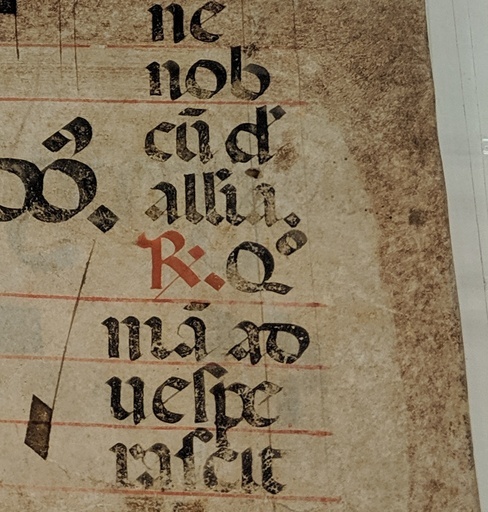 ne
nob̄
cū d'
allīa.
R. Qº
niā ad
uespe
rascit